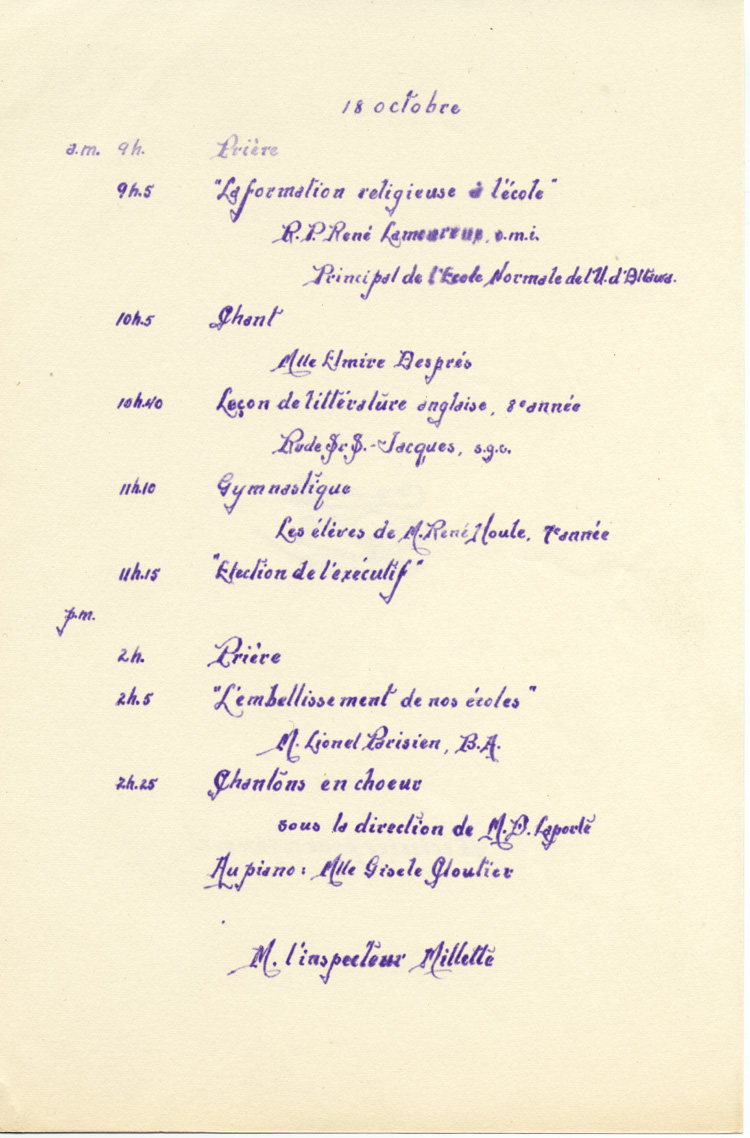 18 octobre
a.m. 9h. Prière
9h.5 "La formation religieuse à l'école"
R.P. René Lamoureux, o.m.i.
Principal de l'Ecole Normale de l'U. d'Ottawa.
10h.5 Chant
Mlle Elmire Després
10h.40 Leçon de littérature anglaise, 8e année
Rvde Sr S.-Jacques, s.g.c.
11h.10 Gymnastique
Les élèves de M. René Houle, 7e année
11h.15 "Election de l'exécutif"
p.m.
2h. Prière
2h.5 "L'embellissement de nos écoles"
M. Lionel Parisien, B.A.
2h.25 Chantons en choeur
sous la direction de M. D. Laporte
Au piano: Mlle Gisele Cloutier
M. l'inspecteur Millette